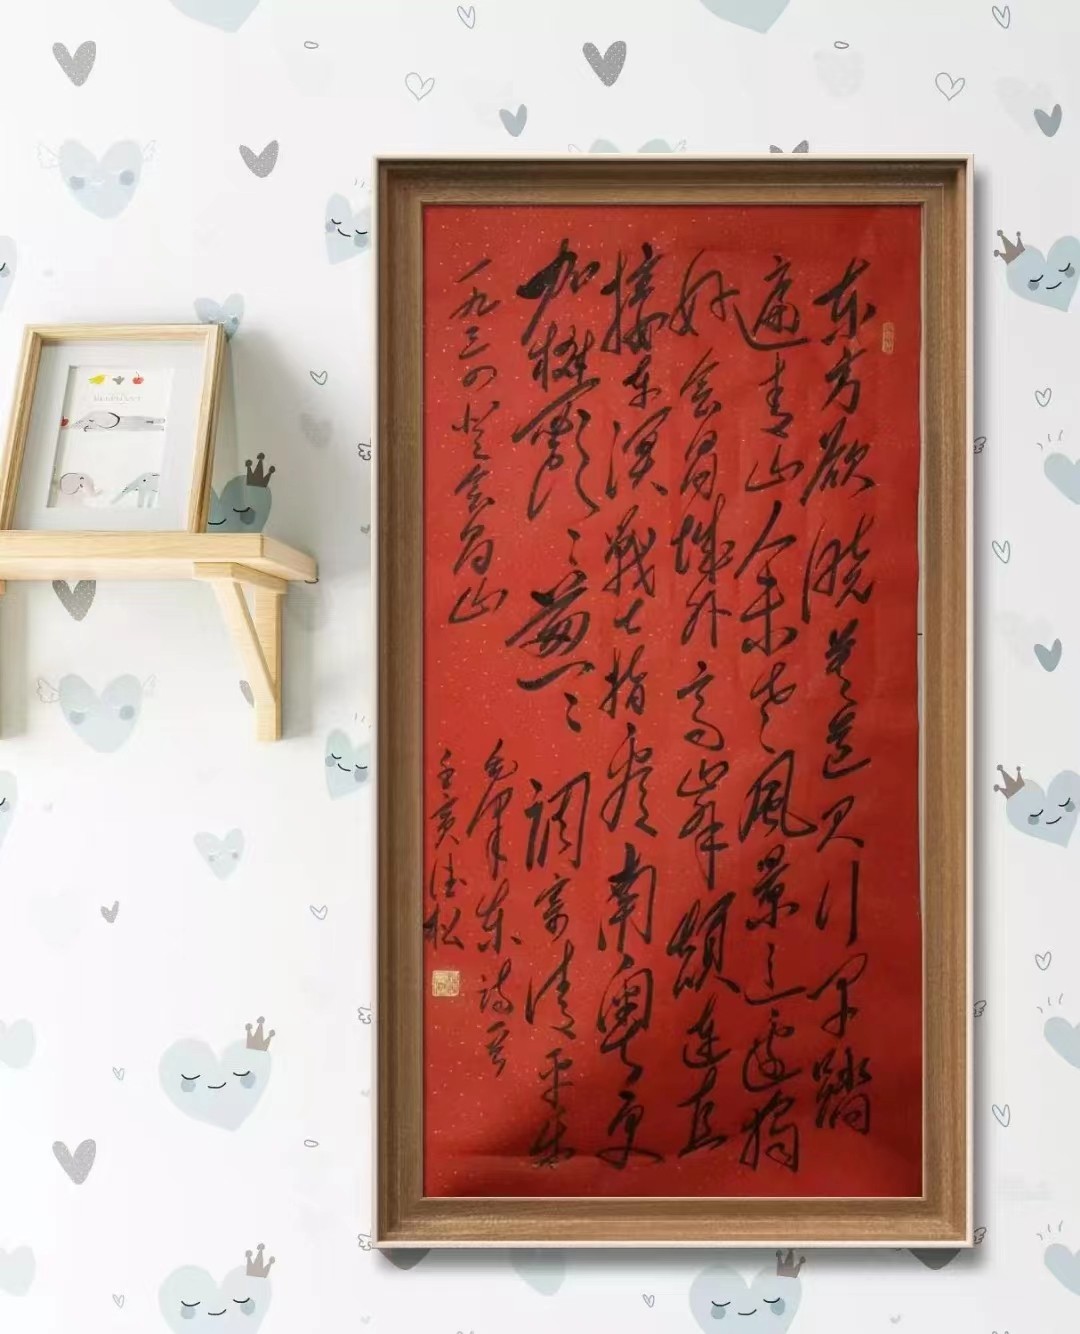 东方欲晓莫道君行早踏
遍青山人未老風景这边独
好会昌城外高峰颠连直
接东溟战士指看南粤更
加欝〻葱〻调寄清平乐
一九三四登会昌山
毛泽东诗一首
壬寅德松